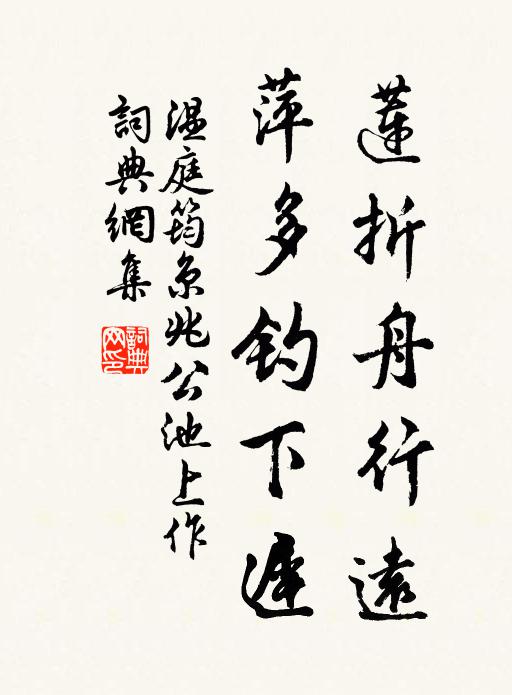 蓮折舟行遠
萍多釣下遲
温庭筠京兆公池上作
詞典網集
詞典网印